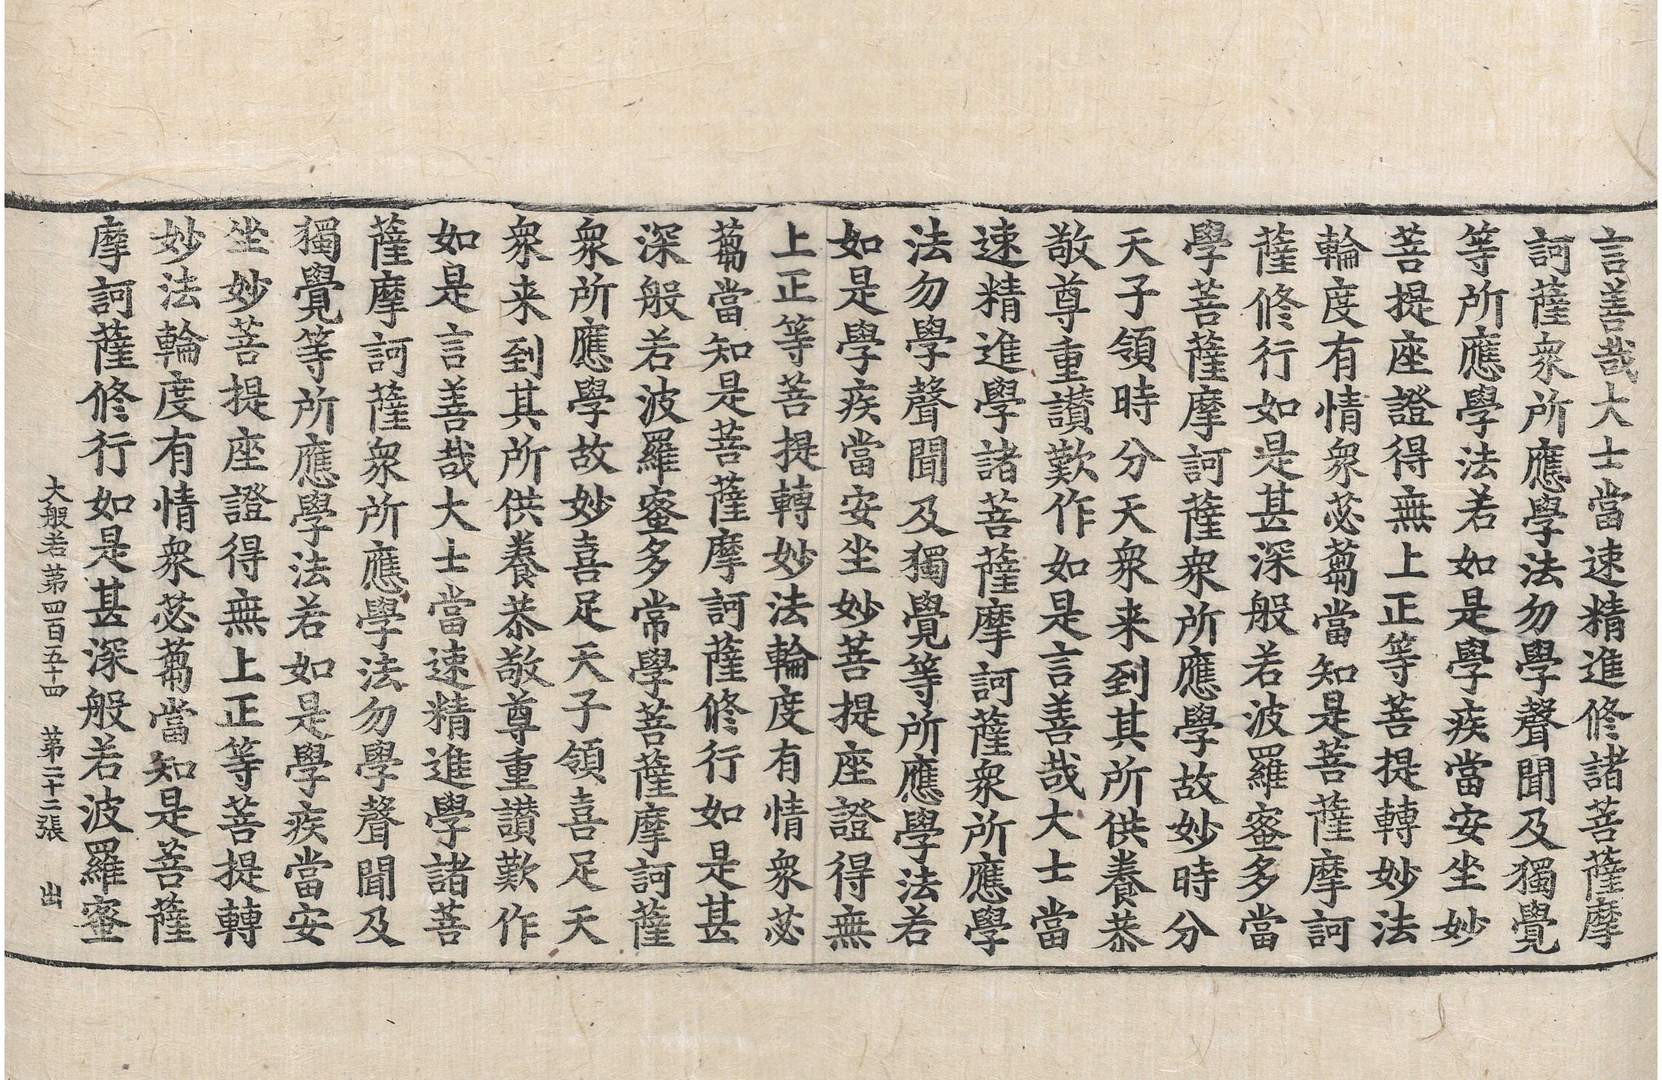 言善哉大士當速精進修諸菩薩摩
訶薩衆所應學法勿學聲聞及獨覺
等所應學法若如是學疾當安坐妙
菩提座證得無上正等菩提轉妙法
輪度有情衆苾蒭當知是菩薩摩訶
薩修行如是甚深般若波羅蜜多當
學菩薩摩訶薩衆所應學故妙時分
天子領時分天衆来到其所供養恭
敬尊重讃歎作如是言善哉大士當
速精進學諸菩薩摩訶薩衆所應學
法勿學聲聞及獨覺等所應學法若
如是學疾當安坐妙菩提座證得無
上正等菩提轉妙法輪度有情衆苾
蒭當知是菩薩摩訶薩修行如是甚
深般若波羅蜜多常學菩薩摩訶薩
衆所應學故妙喜足天子領喜足天
衆来到其所供養恭敬尊重讃歎作
如是言善哉大士當速精進學諸菩
薩摩訶薩衆所應學法勿學聲聞及
獨覺等所應學法若如是學疾當安
坐妙菩提座證得無上正等菩提轉
妙法輪度有情衆苾蒭當知是菩薩
摩訶薩修行如是甚深般若波羅蜜
大般若第四百五十四 第二十二張 出